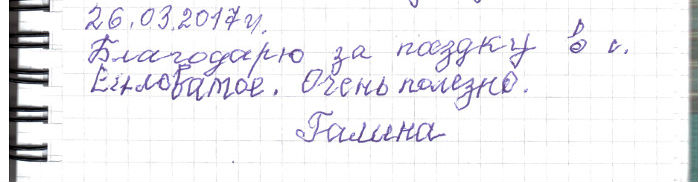 26.03.2017г.
Благодарю за поездку в с.
Еткловатое. Очень полезно.
Галина